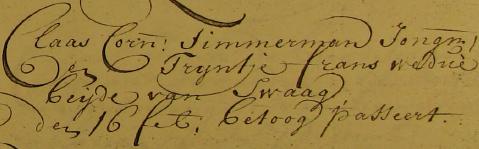 Claas Corn: Timmerman Jongm:
en Tryntje frans wedúe
beijde van Swaag
den 16 feb: betoog passeert.